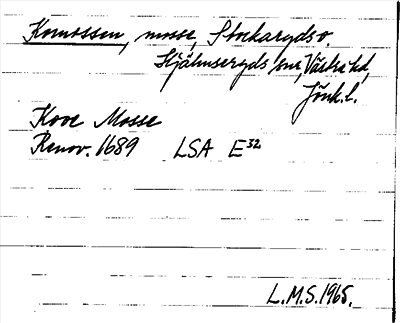 Komossen, mosse, Stockaryds o.
Hjälmseryds snr, Västra hd,
Jönk. l.
Kove Mosse
Renov. 1689 LSA E³²
L.M.S. 1965.